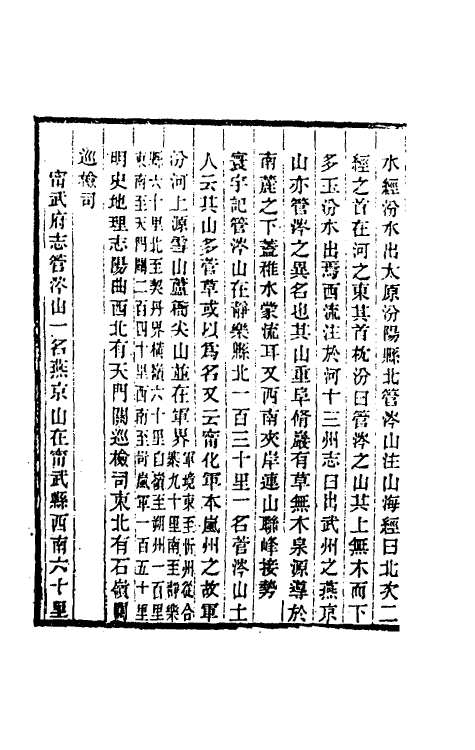 水經汾水出太原汾陽縣北管涔山注山海經曰北次二
經之首在河之東其首枕汾曰管涔之山其上無木而下
多玉汾水出焉西流注於河十三州志曰出武州之燕京
山亦管涔之異名也其山重阜脩巖有草無木泉源導於
南麓之下蓋稚水濛流耳又西南夾岸連山聯峰接勢
寰宇記管涔山在靜樂縣北一百三十里一名菅涔山土
人云其山多菅草或以爲名又云甯化軍本嵐州之故軍
汾河上源雪山蘆衙尖山並在軍界軍境東至忻州從合
嶺九十里南至靜樂
縣六十里北至契丹界橫嶺六十里自嶺至朔州一百里
東南至天門關二百四十里西南至岢嵐軍一百五十里
明史地理志陽曲西北有天門關巡檢司東北有石嶺關
巡檢司
甯武府志管涔山一名燕京山在甯武縣西南六十里